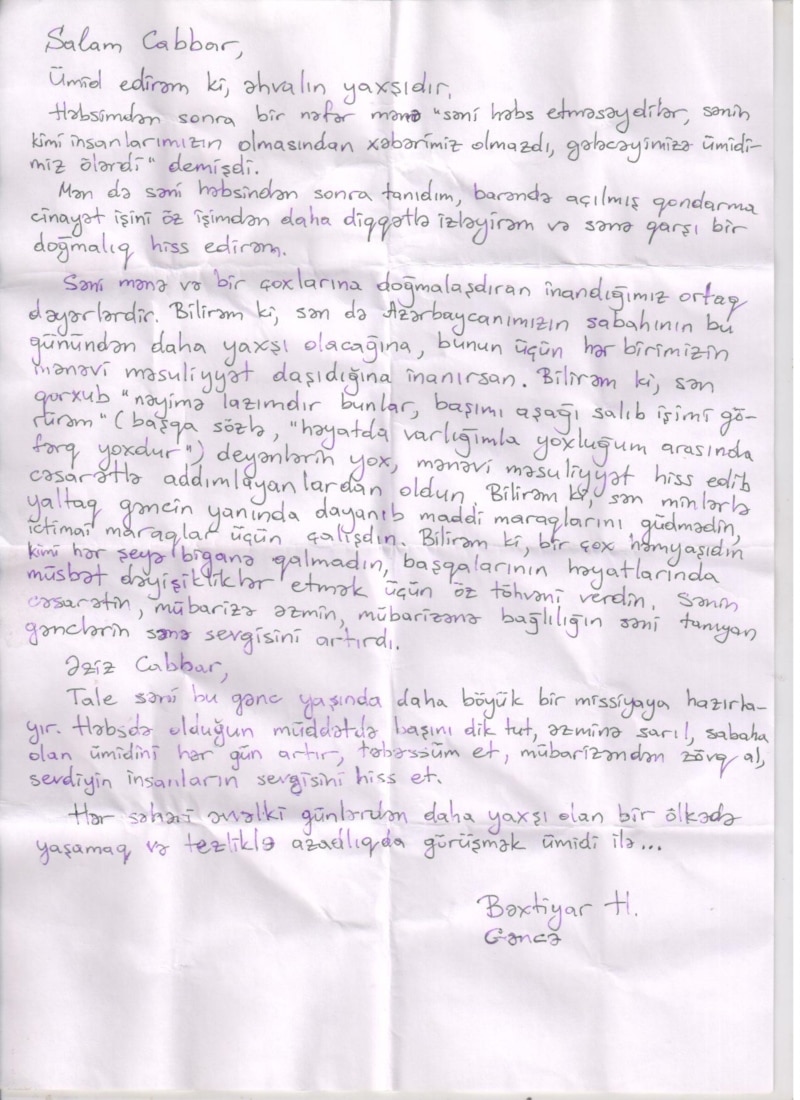 Salam Cabbar,
Ümid edirəm ki, əhvalın yaxşıdır.
Həbsimdən sonra bir nəfər mənə "səni həbs etməsəydilər, sənin
kimi insanlarımızın olmasından xəbərimiz olmazdı, gələcəyimizə ümidi-
miz ölərdi" demişdi.
Mən də səni həbsindən sonra tanıdım, barəndə açılmış qondarma
cinayət işini öz işimdən daha diqqətlə izləyirəm və sənə qarşı bir
doğmalıq hiss edirəm.
Səni mənə və bir çoxlarına doğmalaşdıran inandığımız ortaq
dəyərlərdir. Bilirəm ki, sən də Azərbaycanımızın sabahının bu
günündən daha yaxşı olacağına, bunun üçün hər birimizin
mənəvi məsuliyyət daşıdığına inanırsan. Bilirəm ki, sən
qorxub "nəyimə lazımdır bunlar, başımı aşağı salıb işimi gö-
rürəm" (başqa sözlə, "həyatda varlığımla yoxluğum arasında
fərq yoxdur") deyənlərin yox, mənəvi məsuliyyət hiss edib
cəsarətlə addımlayanlardan oldun. Bilirəm ki, sən minlərlə
yaltaq gəncin yanında dayanıb maddi maraqlarını güdmədin,
ictimai maraqlar üçün çalışdın. Bilirəm ki, bir çox həmyaşıdın
kimi hər şeyə biganə qalmadın, başqalarının həyatlarında
müsbət dəyişikliklər etmək üçün öz töhvəni verdin. Sənin
cəsarətin, mübarizə əzmin, mübarizənə bağlılığın səni tanıyan
gənclərin sənə sevgisini artırdı.
Əziz Cabbar,
Tale səni bu gənc yaşında daha böyük bir missiyaya hazırla-
yır. Həbsdə olduğun müddətdə başını dik tut, əzminə sarıl, sabaha
olan ümidini hər gün artır, təbəssüm et, mübarizəndən zövq al,
sevdiyin insanların sevgisini hiss et.
Hər səhəri əvvəlki günlərdən daha yaxşı olan bir ölkədə
yaşamaq və tezliklə azadlıqda görüşmək ümidi ilə...
Bəxtiyar H.
Gəncə